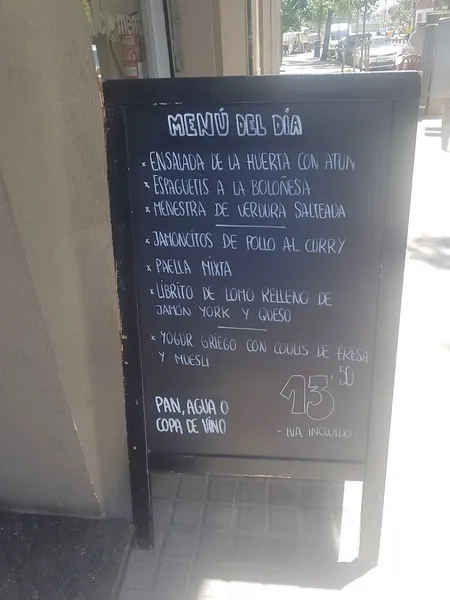 MENÚ DEL DÍA
x ENSALADA DE LA HUERTA CON ATUN
x ESPAGUETIS A LA BOLOÑESA
x MENESTRA DE VERDURA SALTEADA
x JAMONCITOS DE POLLO AL CURRY
x PAELLA MIXTA
x LIBRITO DE LOMO RELLENO DE
JAMÓN YORK Y QUESO
x YOGUR GRIEGO CON COULIS DE FRESA
Y MUESLI
13'50
PAN, AGUA O
COPA DE VINO
- IVA INCLUIDO -